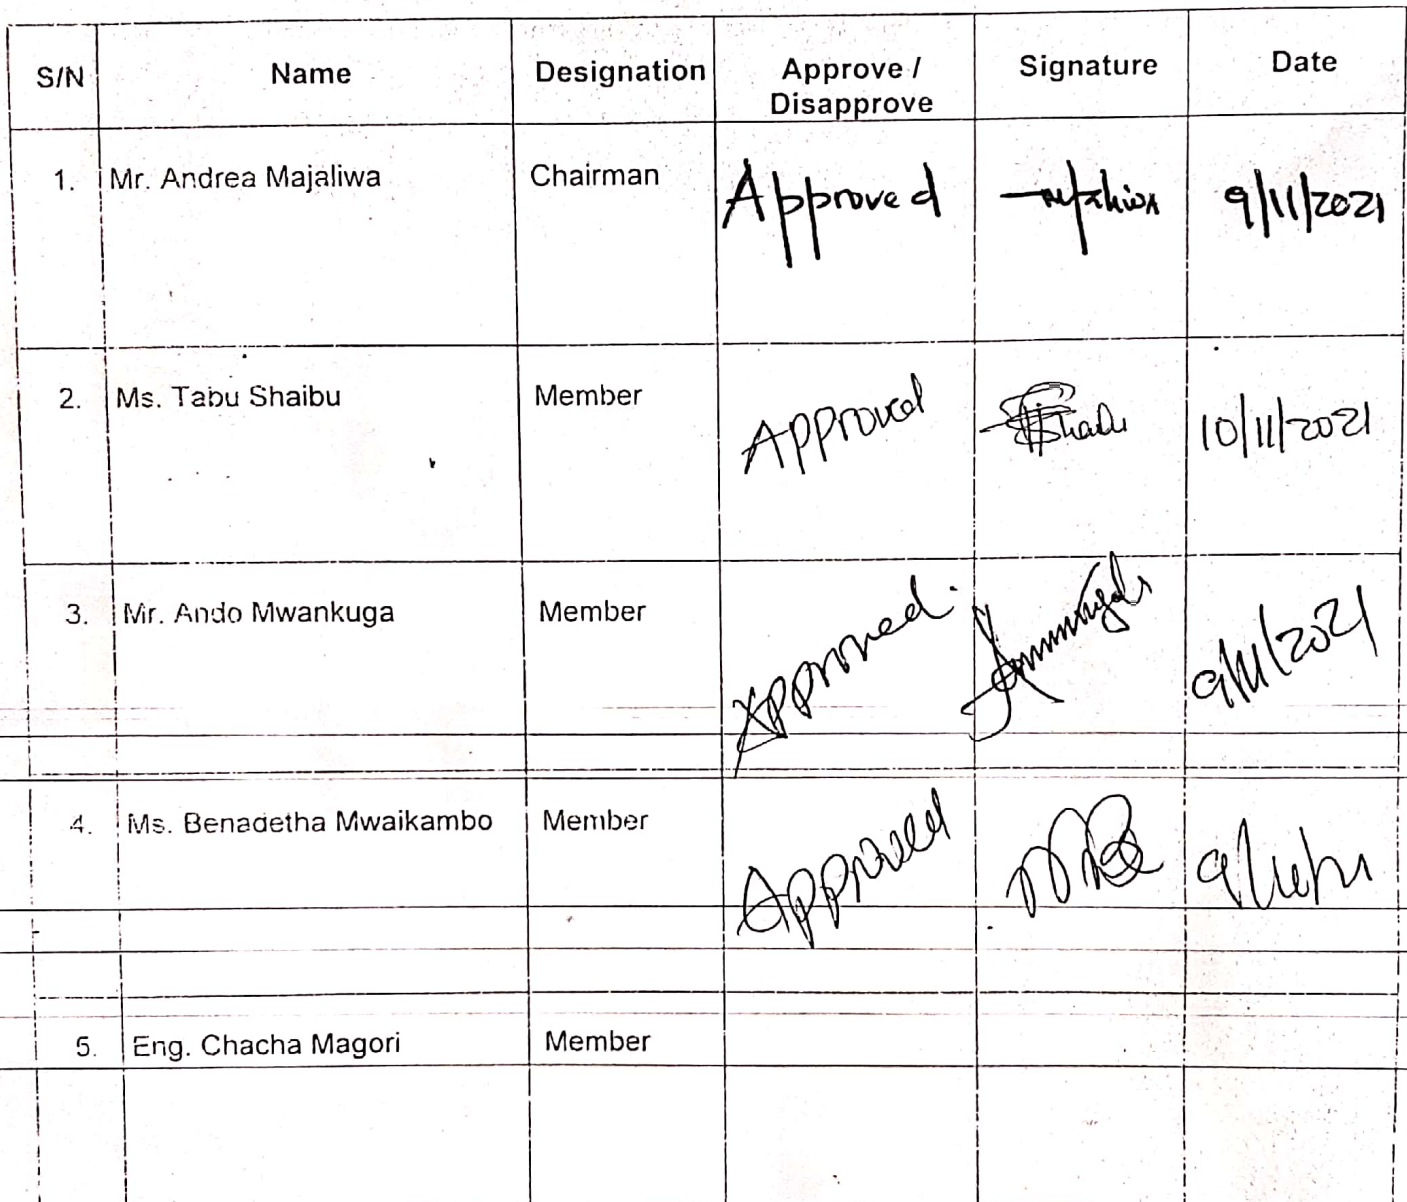 S/N Name Designation Approve / Disapprove Signature Date
1. Mr. Andrea Majaliwa Chairman Approved 9/11/2021
2. Ms. Tabu Shaibu Member Approved 10/11/2021
3. Mr. Ando Mwankuga Member Approved. 9/11/2021
4. Ms. Benadetha Mwaikambo Member Approved
5. Eng. Chacha Magori Member